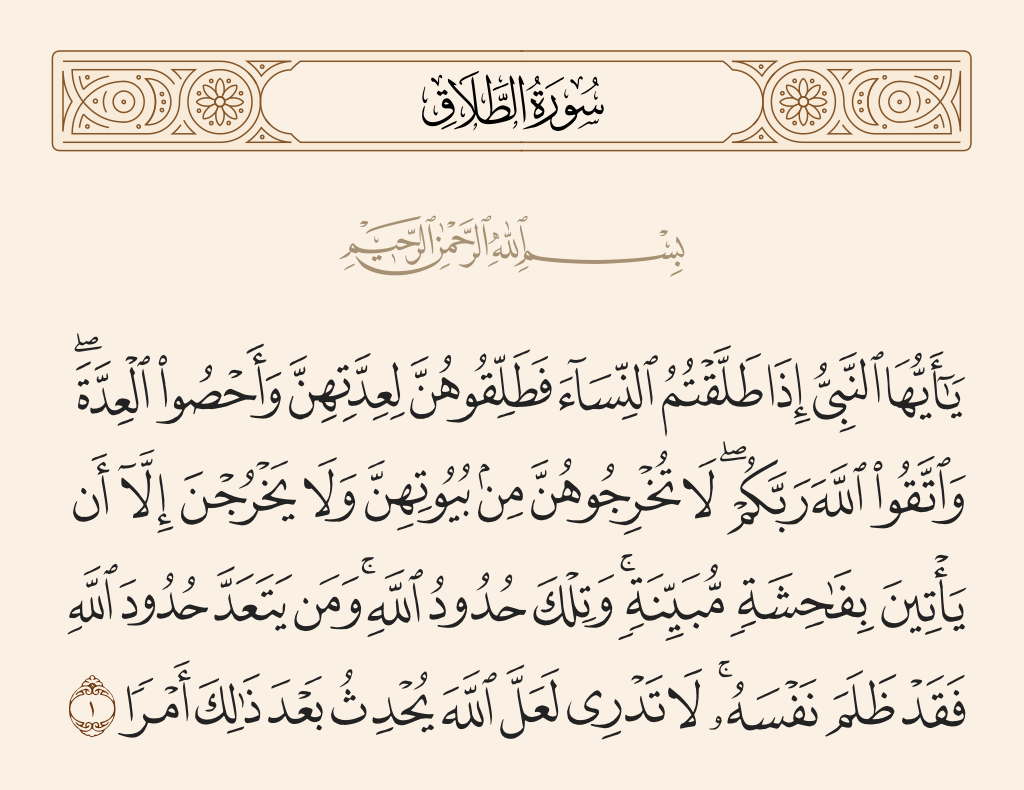 سُورَةُ الطَّلَاقِ
بِسْمِ ٱللَّهِ ٱلرَّحْمَٰنِ ٱلرَّحِيمِ
يَٰٓأَيُّهَا ٱلنَّبِىُّ إِذَا طَلَّقْتُمُ ٱلنِّسَآءَ فَطَلِّقُوهُنَّ لِعِدَّتِهِنَّ وَأَحْصُوا۟ ٱلْعِدَّةَ ۖ
وَٱتَّقُوا۟ ٱللَّهَ رَبَّكُمْ ۖ لَا تُخْرِجُوهُنَّ مِنۢ بُيُوتِهِنَّ وَلَا يَخْرُجْنَ إِلَّآ أَن
يَأْتِينَ بِفَٰحِشَةٍ مُّبَيِّنَةٍ ۚ وَتِلْكَ حُدُودُ ٱللَّهِ ۚ وَمَن يَتَعَدَّ حُدُودَ ٱللَّهِ
فَقَدْ ظَلَمَ نَفْسَهُۥ ۚ لَا تَدْرِى لَعَلَّ ٱللَّهَ يُحْدِثُ بَعْدَ ذَٰلِكَ أَمْرًا ١